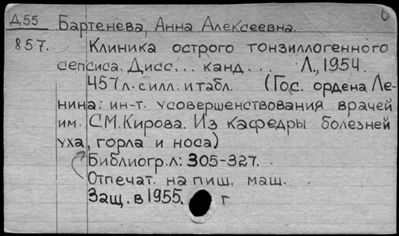 Д55 Бартенева, Анна Алексеевна.
857. Клиника острого тонзиллогенного
сепсиса. Дисс... канд... Л., 1954.
457 л. с илл. и табл. (Гос. ордена Ле-
нина: ин-т. усовершенствования врачей
им. С.М. Кирова. Из кафедры болезней
уха, горла и носа)
Библиогр. л: 305-327.
Отпечат. на пиш. маш.
Защ. в 1955 г